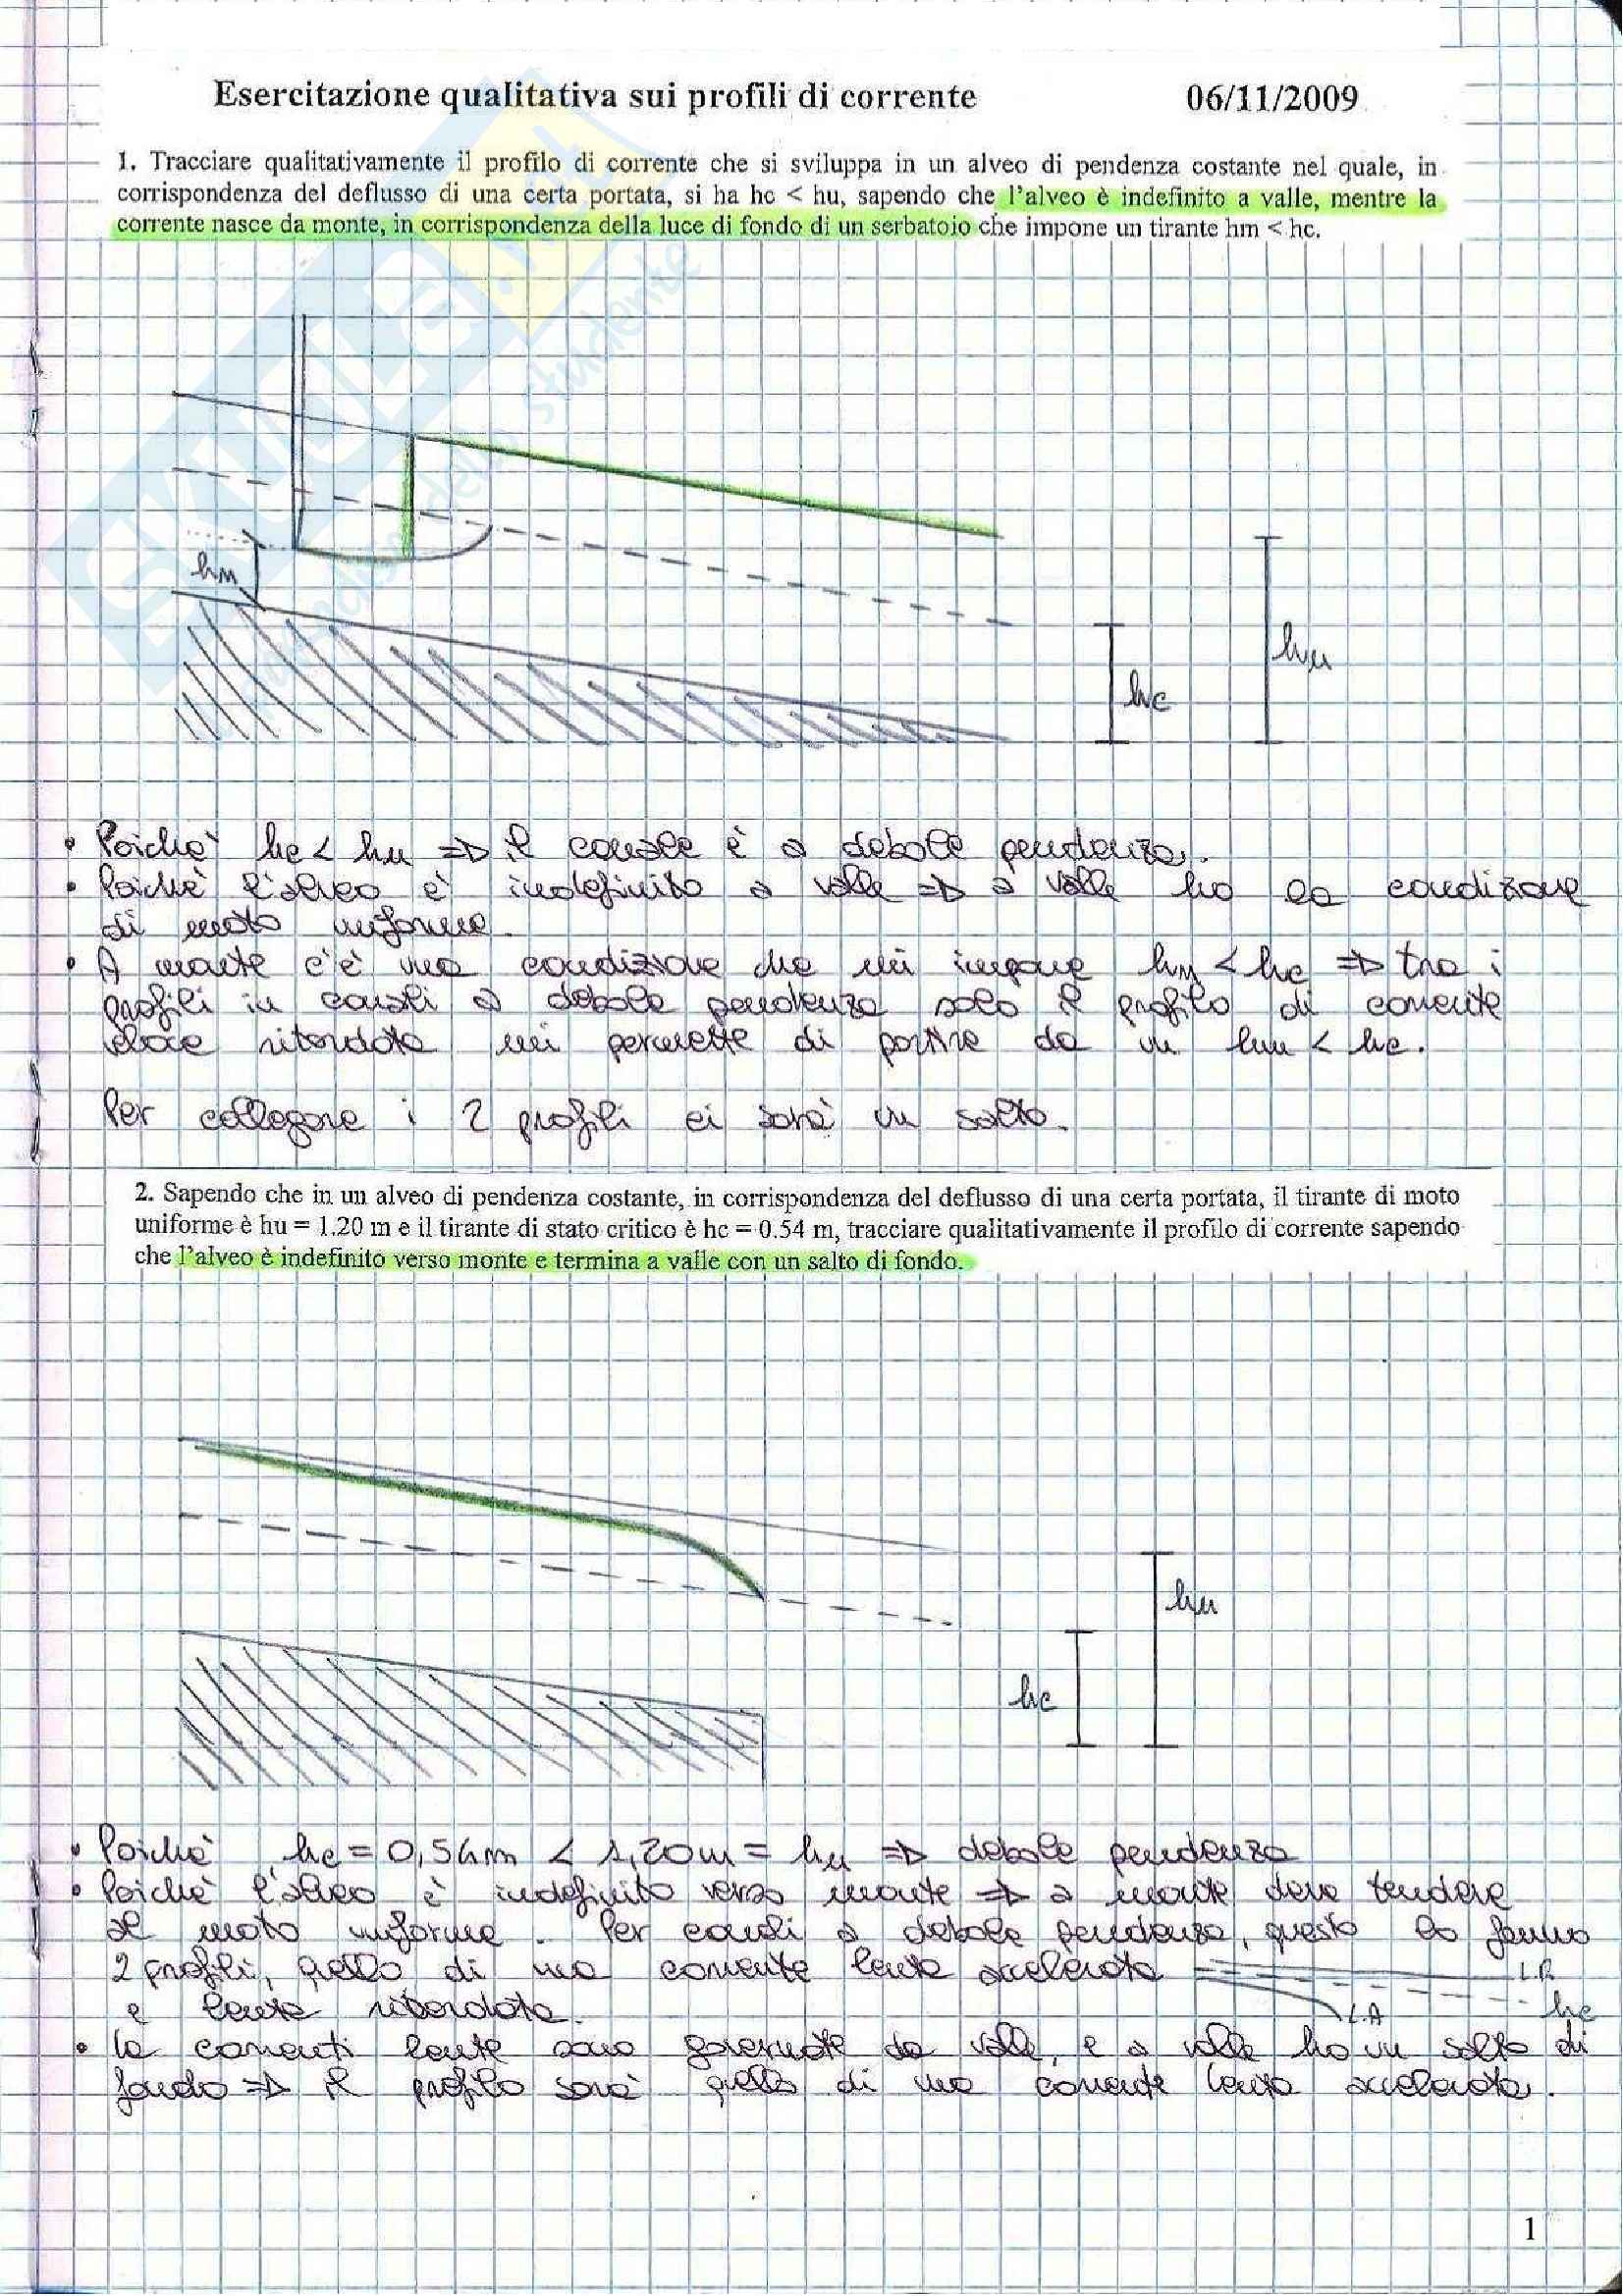 Esercitazione qualitativa sui profili di corrente 06/11/2009
1. Tracciare qualitativamente il profilo di corrente che si sviluppa in un alveo di pendenza costante nel quale, in
corrispondenza del deflusso di una certa portata, si ha hc < hu, sapendo che l'alveo è indefinito a valle, mentre la
corrente nasce da monte, in corrispondenza della luce di fondo di un serbatoio che impone un tirante hm < hc.
SKUOLA.net
hm
hu
hc
• Poiché hc < hu => il canale è a debole pendenza.
• Poiché l'alveo è indefinito a valle => a valle ho la condizione
di moto uniforme.
• A monte c'è una condizione che mi impone hm < hc => tra i
profili in canali a debole pendenza solo il profilo di corrente
veloce ritardata mi permette di partire da un hm < hc.
Per collegare i 2 profili ci sarà un salto.
2. Sapendo che in un alveo di pendenza costante, in corrispondenza del deflusso di una certa portata, il tirante di moto
uniforme è hu = 1.20 m e il tirante di stato critico è hc = 0.54 m, tracciare qualitativamente il profilo di corrente sapendo
che l'alveo è indefinito verso monte e termina a valle con un salto di fondo.
hu
hc
• Poiché hc = 0,54m < 1,20m = hu => debole pendenza
• Poiché l'alveo è indefinito verso monte => a monte deve tendere
al moto uniforme. Per canali a debole pendenza, questo lo fanno
2 profili, quello di una corrente lenta accelerata
L.R
e lenta ritardata.
L.A
hc
• Le correnti lente sono governate da valle, e a valle ho un salto di
fondo => il profilo sarà quello di una corrente lenta accelerata.
1